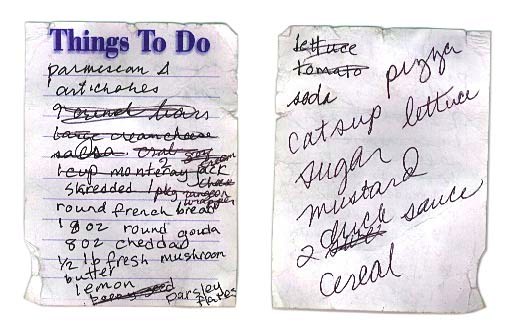 Things To Do
parmesean &
artichokes
large cream cheese
salsa
1 cup monteray jack
shredded 1 pkg
round french bread
1 8 oz round gouda
8 oz cheddar
1/2 lb fresh mushroom
butter
lemon
parsley
plates
lettuce
tomato
pizza
soda
catsup lettuce
sugar
mustard
2 duck sauce
cereal